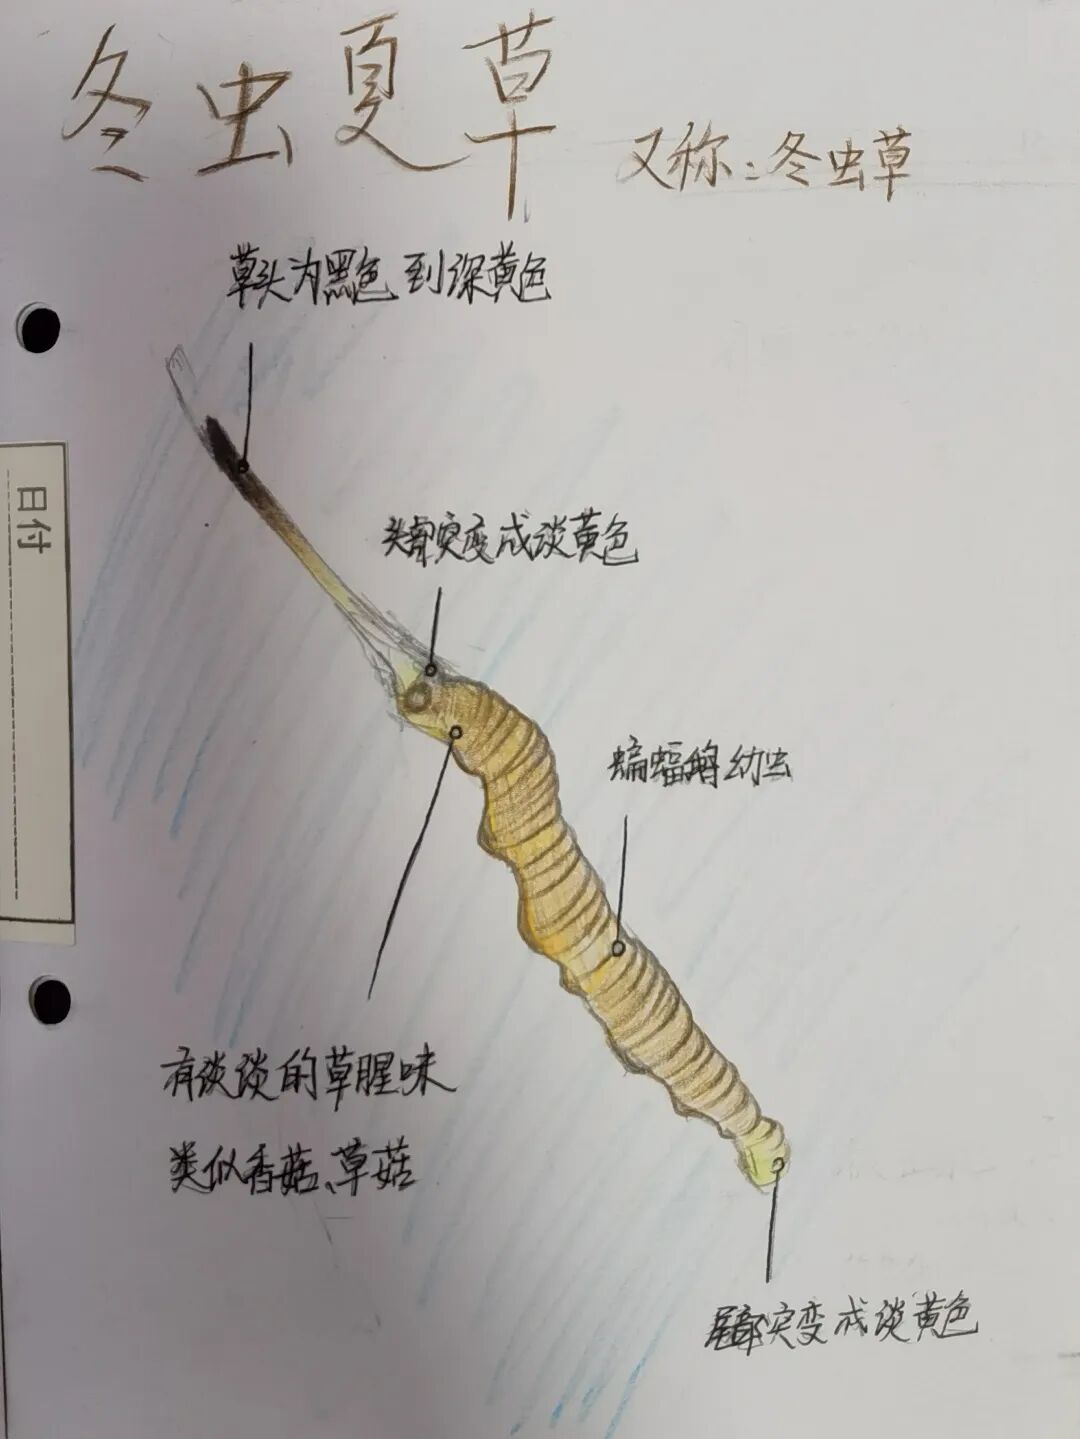 冬虫夏草
又称：冬虫草
草头为黑色到深黄色
日付
头部突变成谈黄色
蝙蝠蛾幼虫
有谈谈的草腥味
类似香菇、草菇
尾部突变成谈黄色